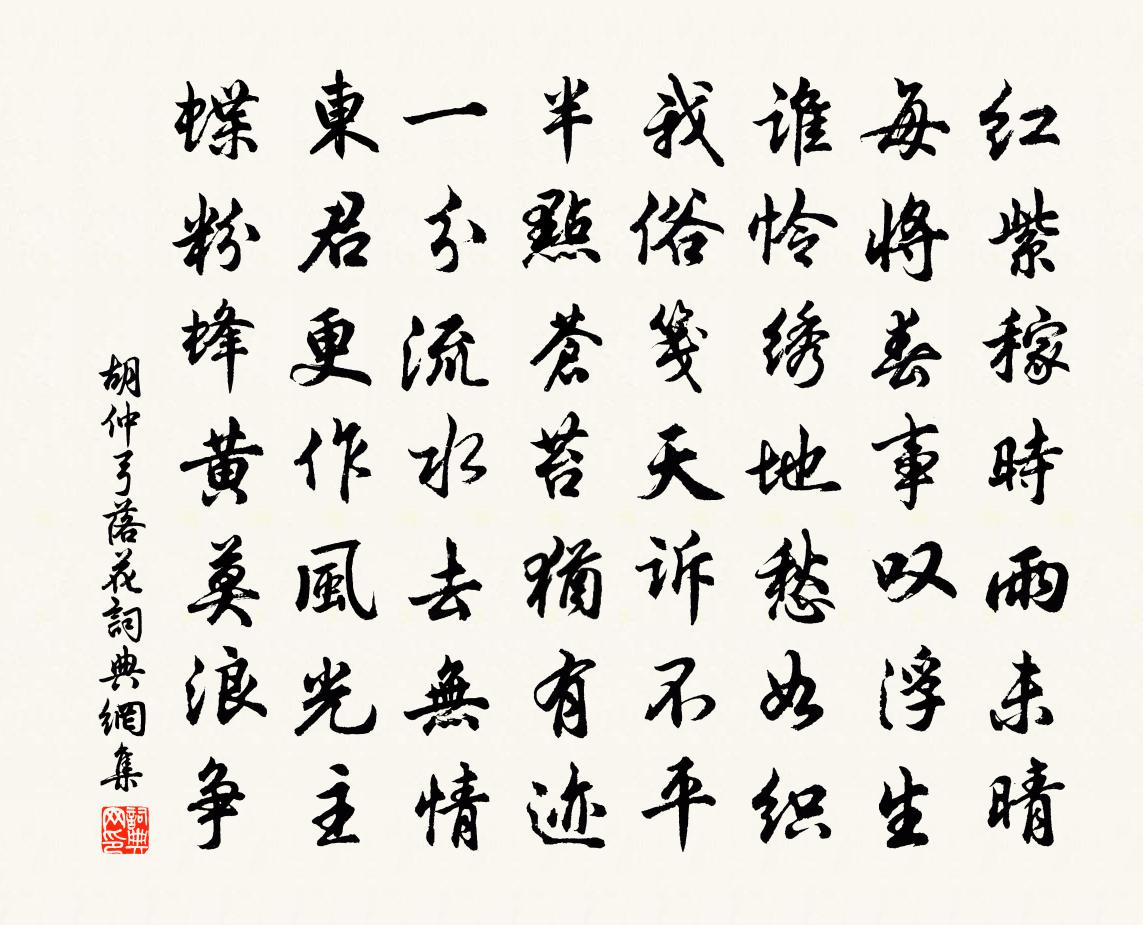 红紫稼時雨未晴
每將春事叹浮生
谁怜绣地愁如织
我俗箋天诉不平
半點蒼苔猶有迹
一分流水去無情
東君更作風光主
蝶粉蜂黄莫浪争
胡仲弓落花詞典網集
詞典网印